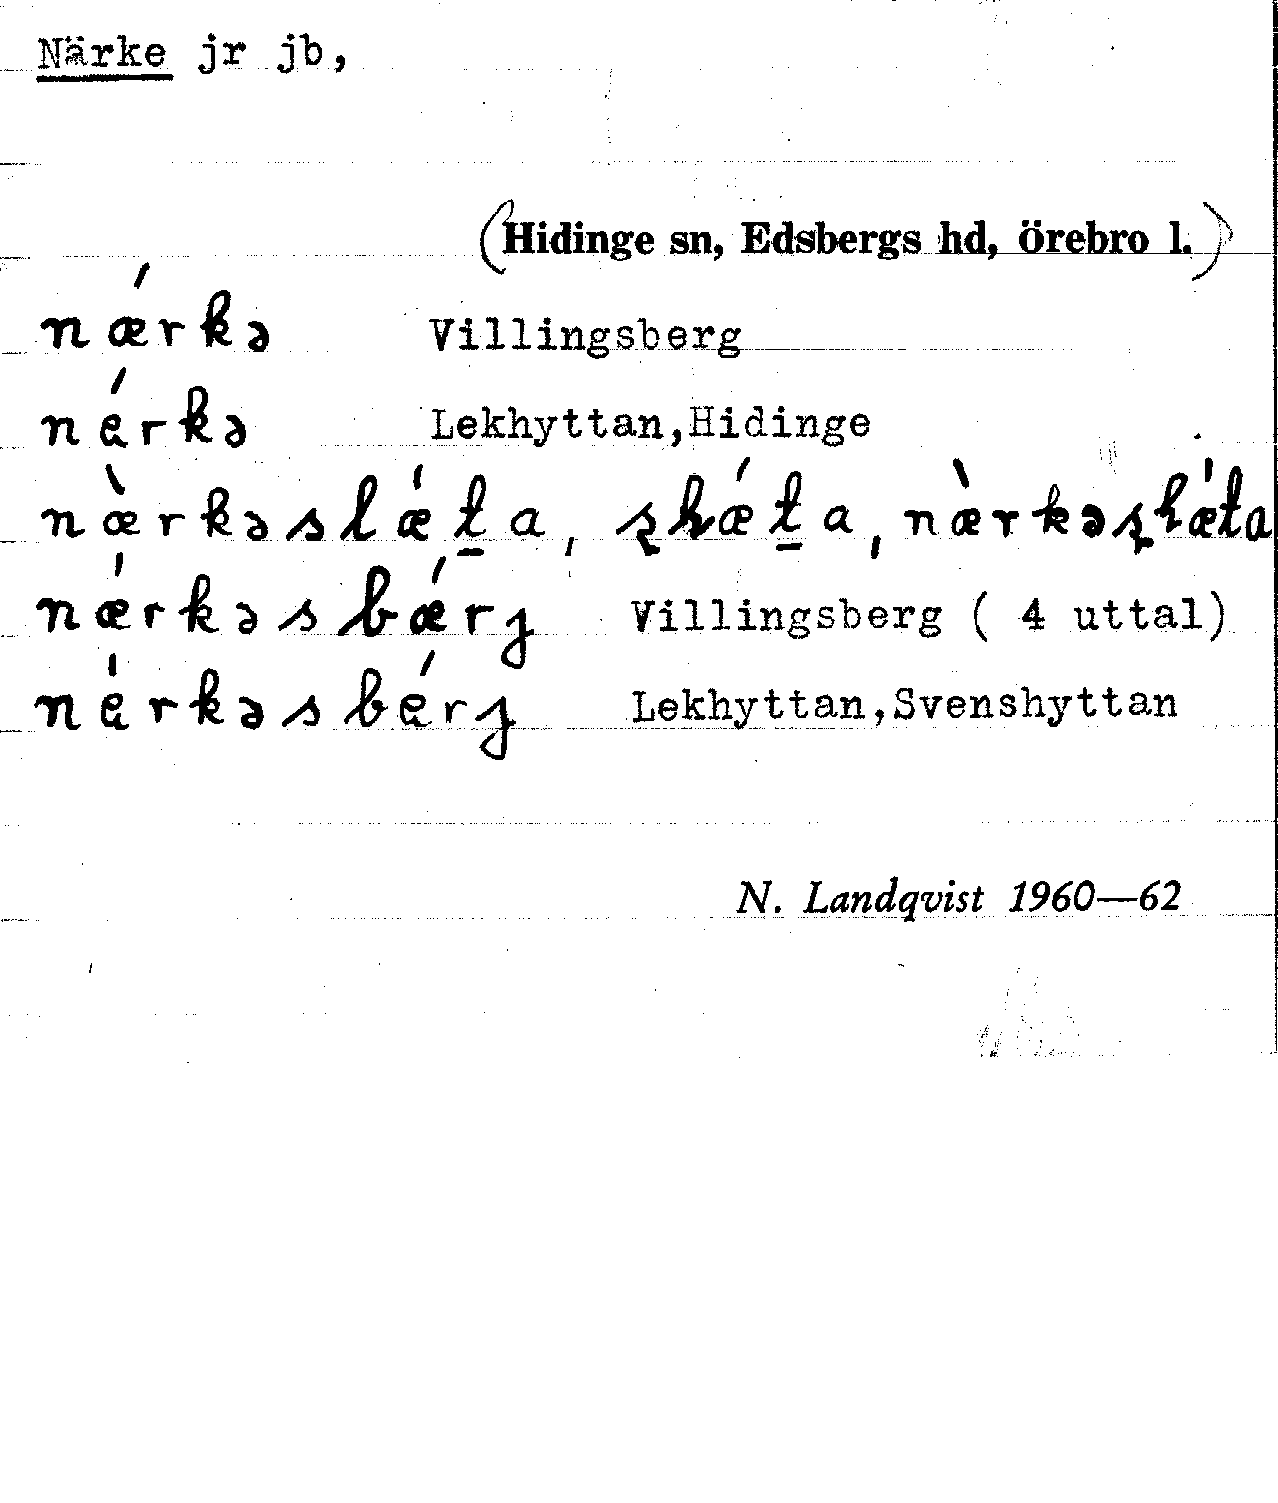 Närke jr jb,
(Hidinge sn, Edsbergs hd, Örebro l.)
nǽrkə Villingsberg
nérkə Lekhyttan,Hidinge
næ̀rkəslǽṯa, ʂhǽṯa, næ̀rkəʂhǽta
nǽrkəsbǽrʒ Villingsberg ( 4 uttal)
nérkəsbérʒ Lekhyttan,Svenshyttan
N. Landqvist 1960—62